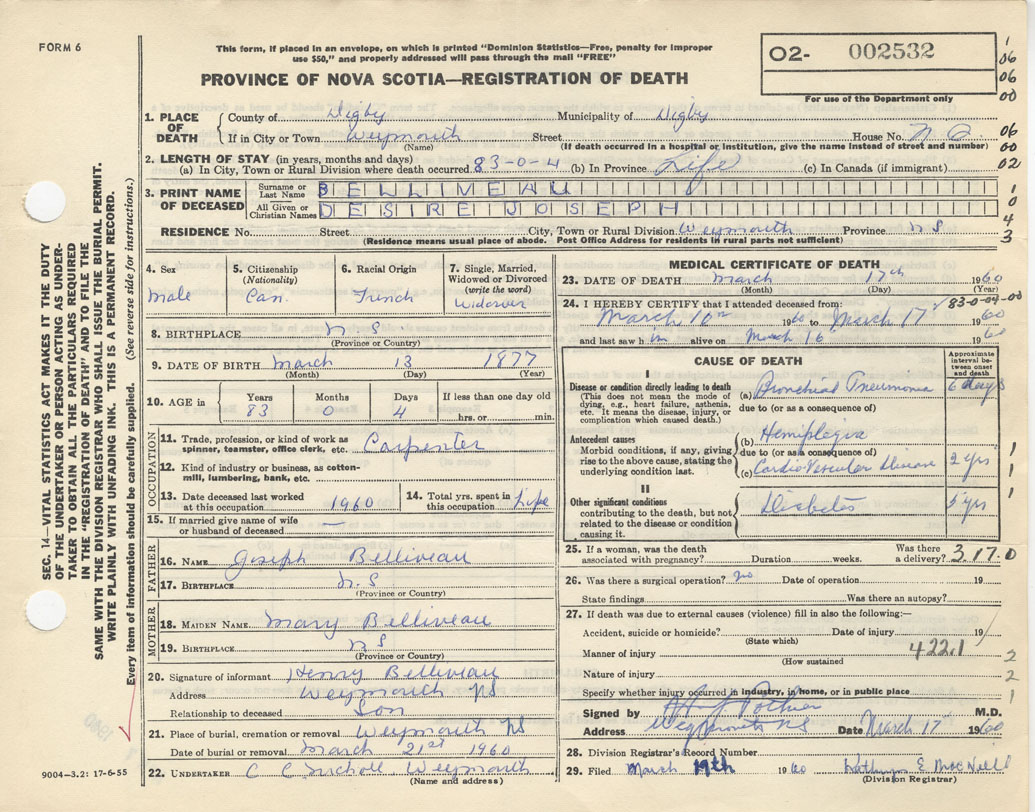 FORM 6
This form, if placed in an envelope, on which is printed "Dominion Statistics—Free, penalty for improper
use $50," and properly addressed will pass through the mail "FREE"
O2- 002532
For use of the Department only
PROVINCE OF NOVA SCOTIA—REGISTRATION OF DEATH
1
06
06
00
06
00
02
1
0
4
3
1. PLACE OF DEATH County of Digby Municipality of Digby
If in City or Town Weymouth Street House No. N S
(Name) (If death occurred in a hospital or institution, give the name instead of street and number)
2. LENGTH OF STAY (in years, months and days)
(a) In City, Town or Rural Division where death occurred. 83-0-4 (b) In Province Life (c) In Canada (if immigrant)
3. PRINT NAME OF DECEASED Surname or Last Name BELLIVEAU
All Given or Christian Names DESIRE JOSEPH
RESIDENCE No. Street City, Town or Rural Division Weymouth Province N S
(Residence means usual place of abode. Post Office Address for residents in rural parts not sufficient)
SEC. 14—VITAL STATISTICS ACT MAKES IT THE DUTY
OF THE UNDERTAKER OR PERSON ACTING AS UNDER-
TAKER TO OBTAIN ALL THE PARTICULARS REQUIRED
IN THE "REGISTRATION OF DEATH" AND TO FILE THE
SAME WITH THE DIVISION REGISTRAR WHO SHALL ISSUE THE BURIAL PERMIT.
WRITE PLAINLY WITH UNFADING INK. THIS IS A PERMANENT RECORD.
Every item of information should be carefully supplied. (See reverse side for instructions.)
4. Sex
male
5. Citizenship
(Nationality)
Can.
6. Racial Origin
French
7. Single, Married,
Widowed or Divorced
(write the word)
Widower
8. BIRTHPLACE N S
(Province or Country)
9. DATE OF BIRTH March 13 1877
(Month) (Day) (Year)
10. AGE in Years Months Days If less than one day old
83 0 4 hrs. or min.
OCCUPATION
11. Trade, profession, or kind of work as
spinner, teamster, office clerk, etc. Carpenter
12. Kind of industry or business, as cotton-
mill, lumbering, bank, etc.
13. Date deceased last worked
at this occupation 1960
14. Total yrs. spent in
this occupation Life
15. If married give name of wife
or husband of deceased —
FATHER
16. NAME Joseph Belliveau
17. BIRTHPLACE N. S
(Province or Country)
MOTHER
18. MAIDEN NAME Mary Belliveau
19. BIRTHPLACE N S
(Province or Country)
20. Signature of informant Henry Belliveau
Address Weymouth NS
Relationship to deceased Son
21. Place of burial, cremation or removal Weymouth NS
Date of burial or removal March 21st 1960
22. UNDERTAKER C C Nicholl Weymouth
(Name and address)
9004—3.2: 17-6-55
MEDICAL CERTIFICATE OF DEATH
23. DATE OF DEATH March 17th 1960
(Month) (Day) (Year)
83-0-04-00
24. I HEREBY CERTIFY that I attended deceased from:
March 10th 1960 to March 17th 1960
and last saw him alive on March 16 1960
CAUSE OF DEATH
Approximate
interval be-
tween onset
and death
I
Disease or condition directly leading to death
(This does not mean the mode of
dying, e.g., heart failure, asthenia,
etc. It means the disease, injury, or
complication which caused death.)
(a) Bronchial Pneumonia 6 days
due to (or as a consequence of)
Antecedent causes
Morbid conditions, if any, giving
rise to the above cause, stating the
underlying condition last.
(b) Hemiplegia
due to (or as a consequence of)
(c) Cardio-Vascular Disease 2 yrs
1
1
1
II
Other significant conditions
contributing to the death, but not
related to the disease or condition
causing it.
Diabetes 5 yrs
25. If a woman, was the death
associated with pregnancy? Duration weeks. Was there
a delivery? 317.0
26. Was there a surgical operation? no Date of operation 19
State findings Was there an autopsy?
27. If death was due to external causes (violence) fill in also the following:—
Accident, suicide or homicide? Date of injury 19
(State which)
Manner of injury 422.1
(How sustained
Nature of injury
Specify whether injury occurred in industry, in home, or in public place
2
2
1
Signed by Pothier M.D.
Address Weymouth NS Date March 17th 1960
28. Division Registrar's Record Number
29. Filed March 19th 1960 Kathryn E MacNeill
(Division Registrar)